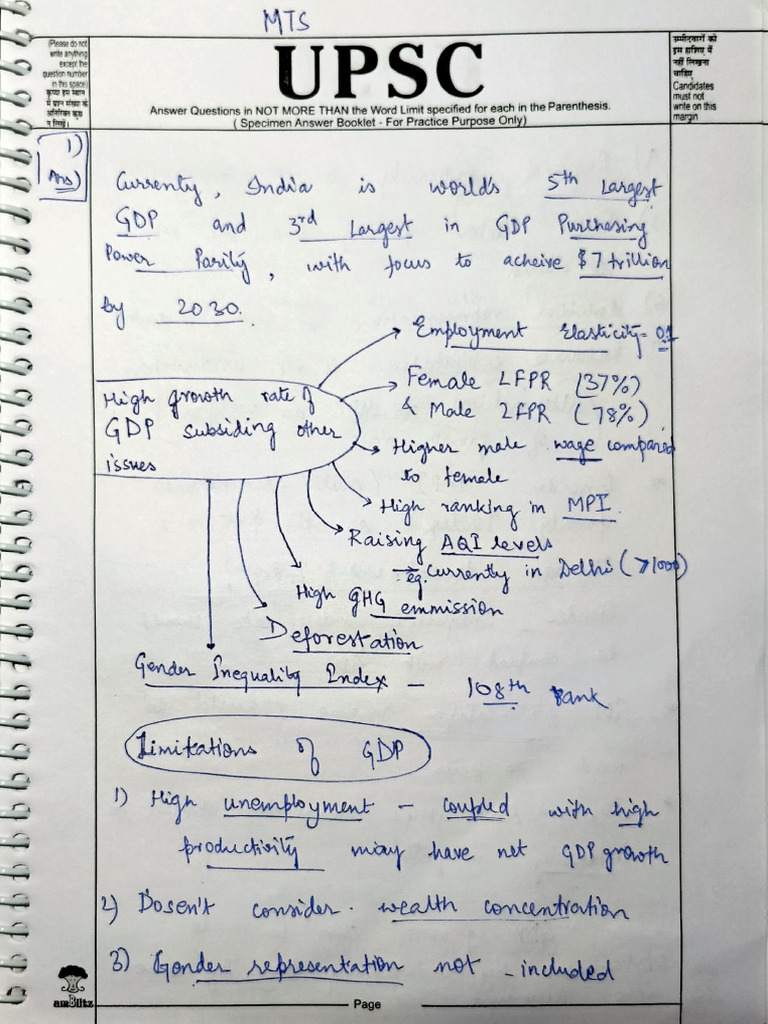 MTS
(Please do not
write anything
except the
question number
in this space)
उम्मीदवारों को
इस हाशिए में
नहीं लिखना
चाहिए
Candidates
must not
write on this
margin
UPSC
Answer Questions in NOT MORE THAN the Word Limit specified for each in the Parenthesis.
( Specimen Answer Booklet - For Practice Purpose Only)
1)
Ans)
Currenty, India is world's 5th Largest
GDP and 3rd Largest in GDP Purchasing
Power Parity, with focus to acheive $7 trillion
by 2030.
Employment Elasticity=
High growth rate of
GDP subsiding other
issues
Female LFPR (37%)
& Male LFPR (78%)
Higher male wage compared
to female
High ranking in MPI.
Raising AQI levels
eg. Currently in Delhi (>1000)
High GHG emmission
Deforestation
Gender Inequality Index - 108th rank
Limitations of GDP
1) High unemployment - coupled with high
productivity may have net GDP growth
2) Dosen't consider. wealth concentration
3) Gender representation not included
Page